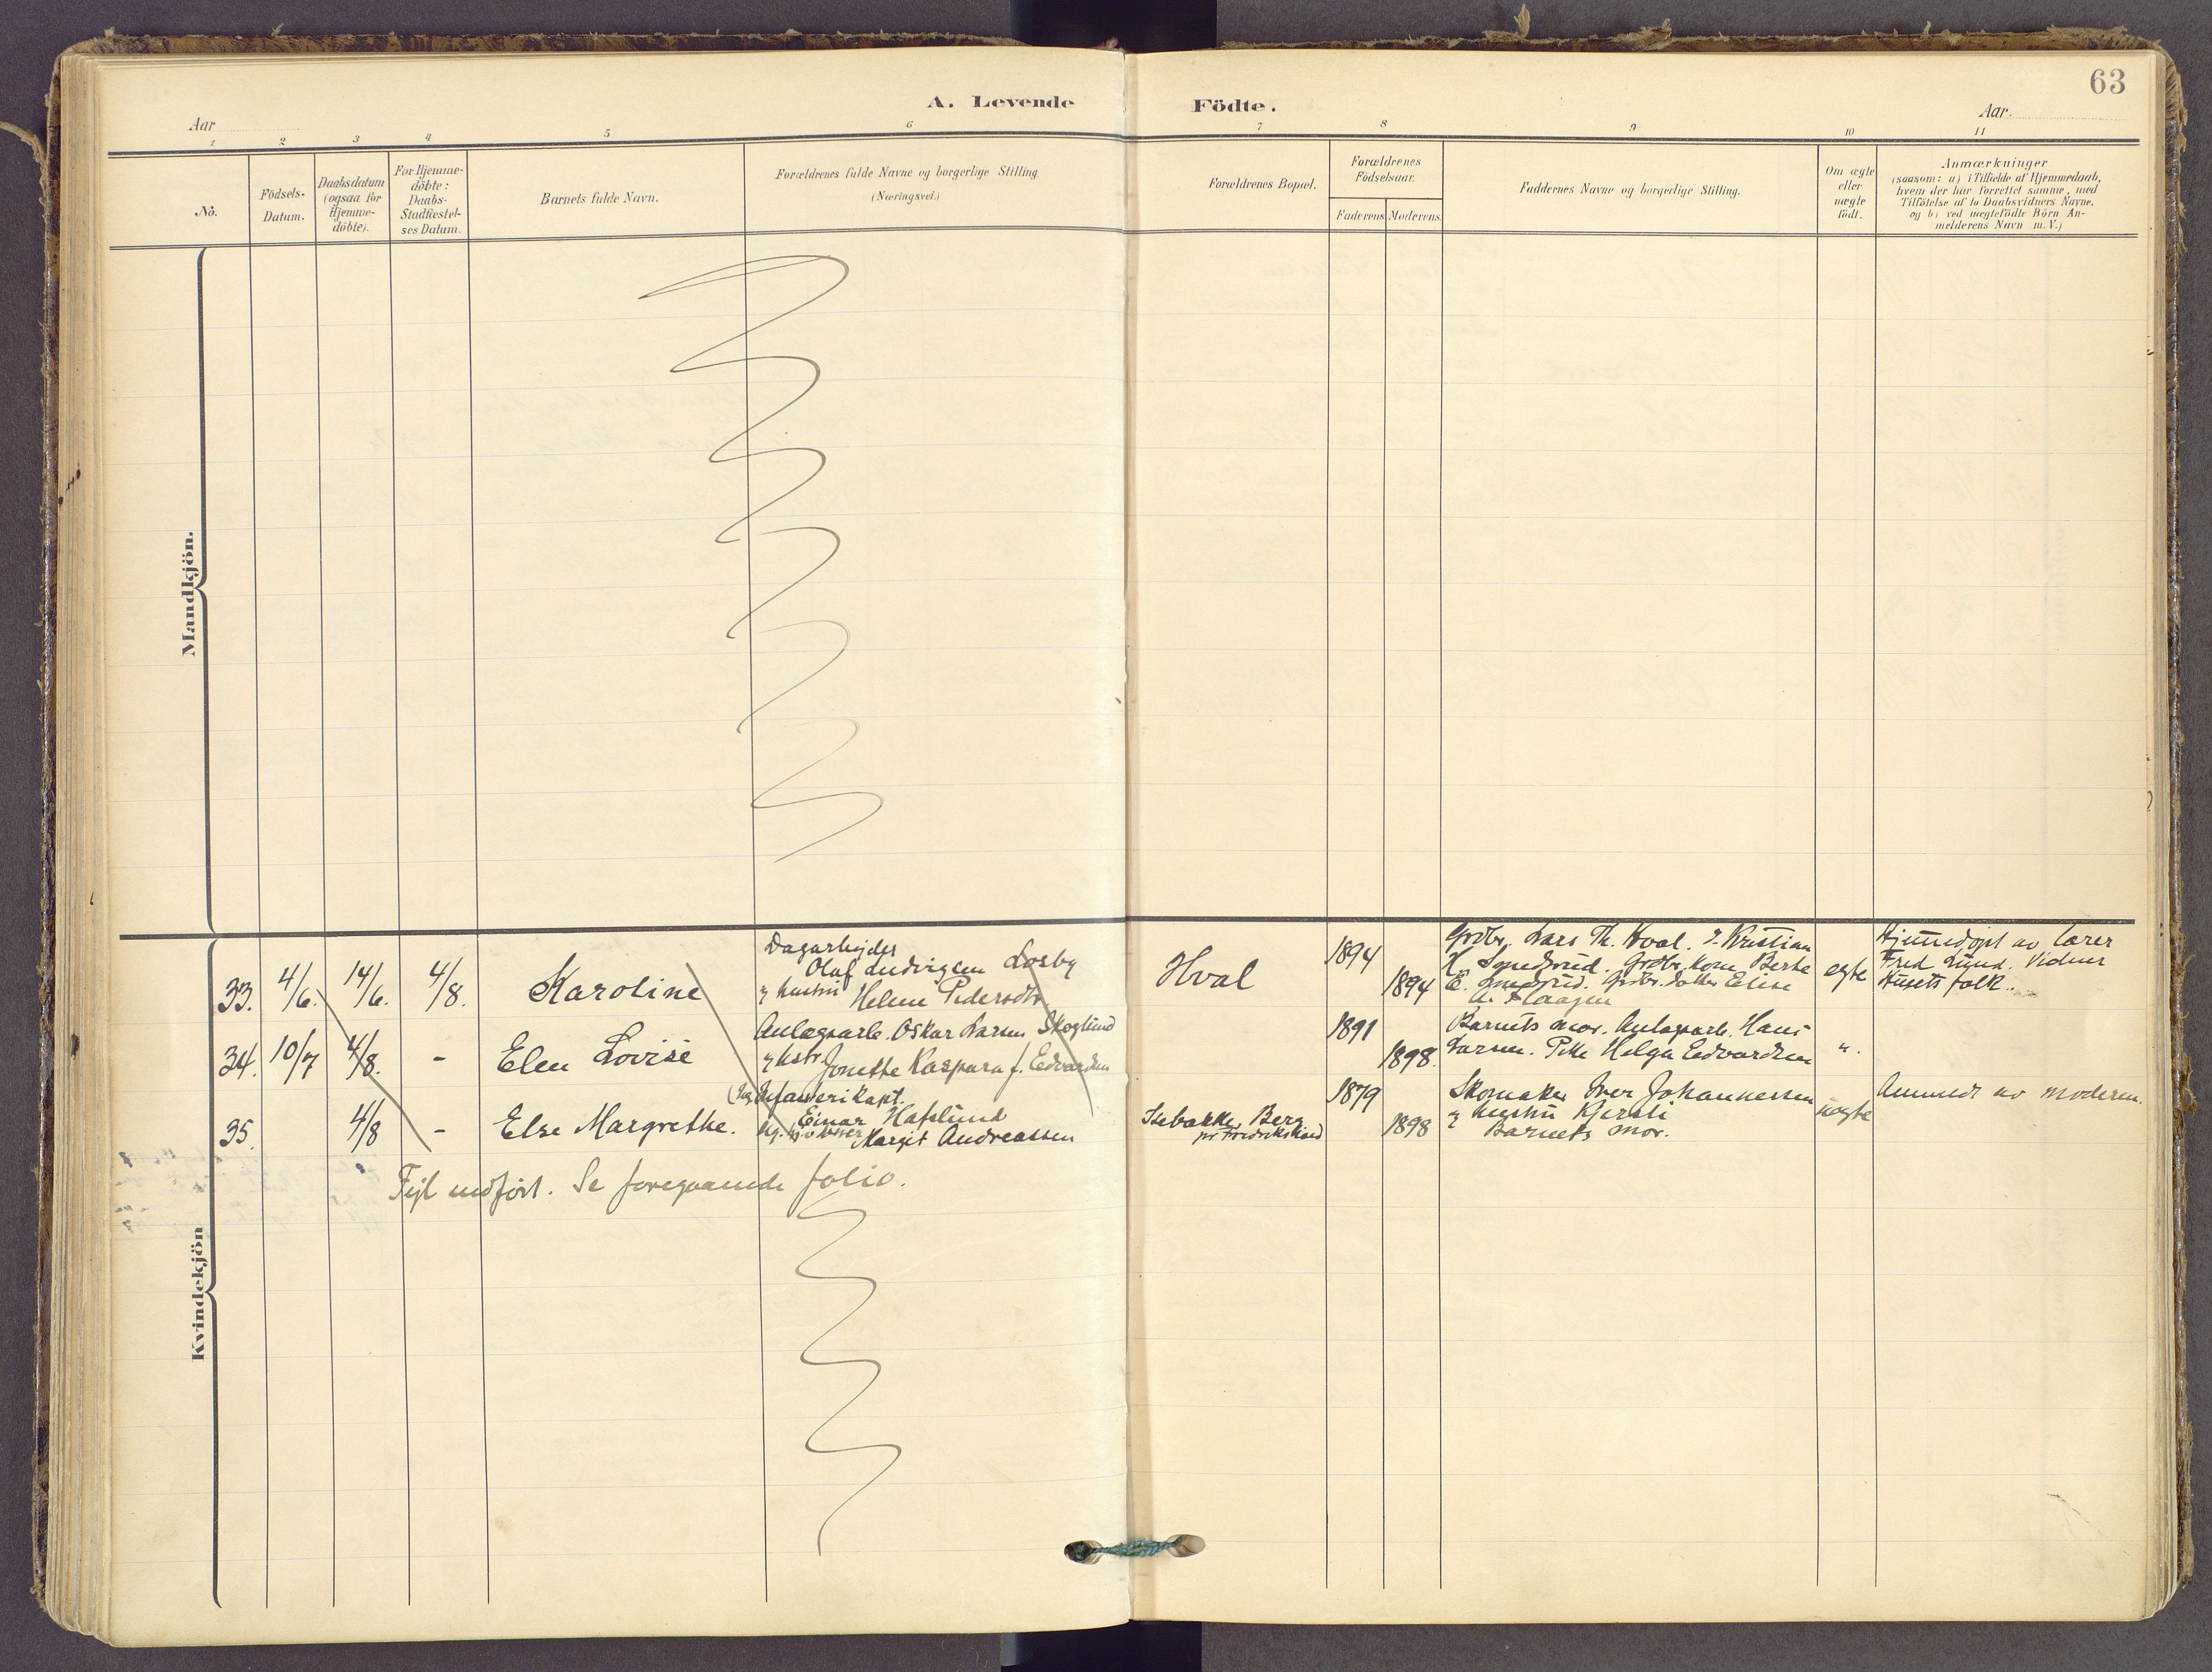 63
A. Levende Födte.
Aar
Aar.
1 2 3 4 5 6 7 8 9 10 11
No.
Födsels-
Datum.
Daabsdatum
(ogsaa for
Hjemme-
döbte).
For Hjemme-
döbte:
Daabs-
Stadfæstel-
ses Datum.
Barnets fulde Navn.
Forældrenes fulde Navne og borgerlige Stilling
(Næringsvei.)
Forældrenes Bopæl.
Forældrenes
Födselsaar.
Faderens Moderens.
Faddernes Navne og borgerlige Stilling.
Om ægte
eller
uægte
födt.
Anmærkninger
(saasom: a) i Tilfælde af Hjemmedaab,
hvem der har forrettet samme, med
Tilföielse af to Daabsvidners Navne.
og b) ved uægtefödte Börn An-
melderens Navn m.V.)
Mandkjön.
Kvindekjön
33. 4/6. 14/6. 4/8. Karoline
Dagarbejder
Olaf Ludvigsen Losby
& hustru Helene Pedersdtr.
Hval
1894
1894
Grdbr. Lars Th. Hval. Kristian
H. Smedsrud. Grdbr. kone Berte
E. Smedsrud. Grdbr. datter Elise
A. Haagen
egte
Hjemmedøpt av lærer
Fred Lund. Vidner
Husets folk.
34. 10/7 4/8. - Elen Lovise
Anlægsarb. Oskar Larsen Skoglund
& hstr. Jonette Kaspara f. Edvardsen
1891
1898.
Barnets mor. Anlagsarb. Hans
Larsen. Pike Helga Edvardsen
".
35. 4/8 - Else Margrethe.
Infanterikapt.
Einar Hafslund
Margit Andreassen
Isebakke, Berg
pr Fredrikshald
1879
1898
Skomaker Iver Johannessen
& hustru Kjersti
Barnets mor.
uegte
Anmeldt av moderen.
Fejl indført. Se foregaaende folio.